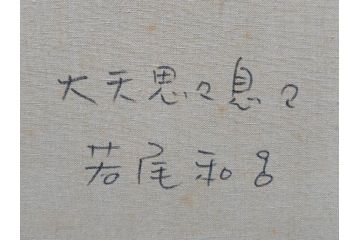 大天思々息々
若尾和呂